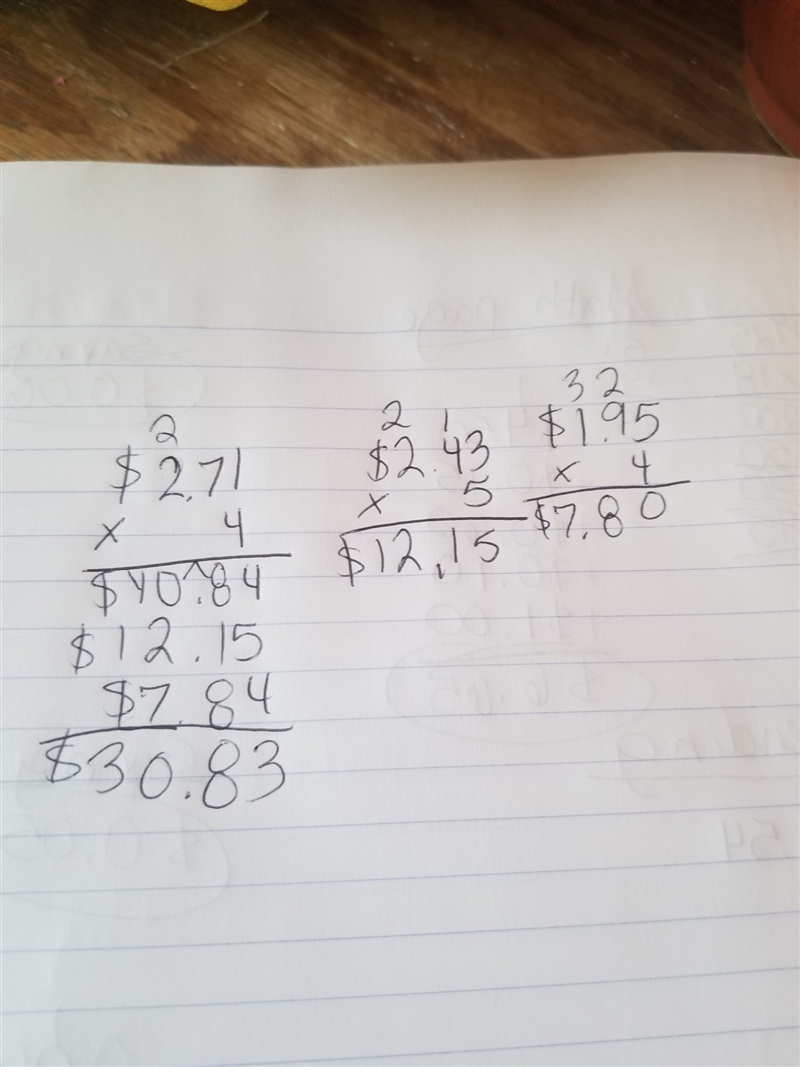 2
$2.71
x 4
$10.84
$12.15
$7.84
$30.83
2 1
$2.43
x 5
$12.15
3 2
$1.95
x 4
$7.80